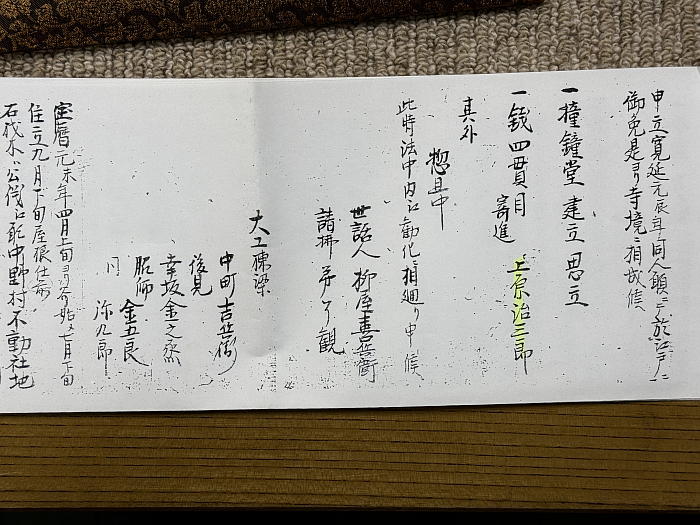 申立寛延元辰年同人願ニテ於江戸ニ
御免是ヨリ寺境ニ相成候
一撞鐘堂建立思立
一銭四貫目 寄進 上原治三郎
其外
惣旦中
此時法中内江勧化ニ相廻り申候
世話人 柳屋喜兵衛
諸拂 弟了観
大工棟梁
中町 吉兵衛
後見
幸坂金之丞
脇師 金五良
同 弥九郎
宝暦元未年四月上旬ヨリ 始 七月下旬
住立九月下旬屋根仕
石伐木 公儀江 中野村不動社地